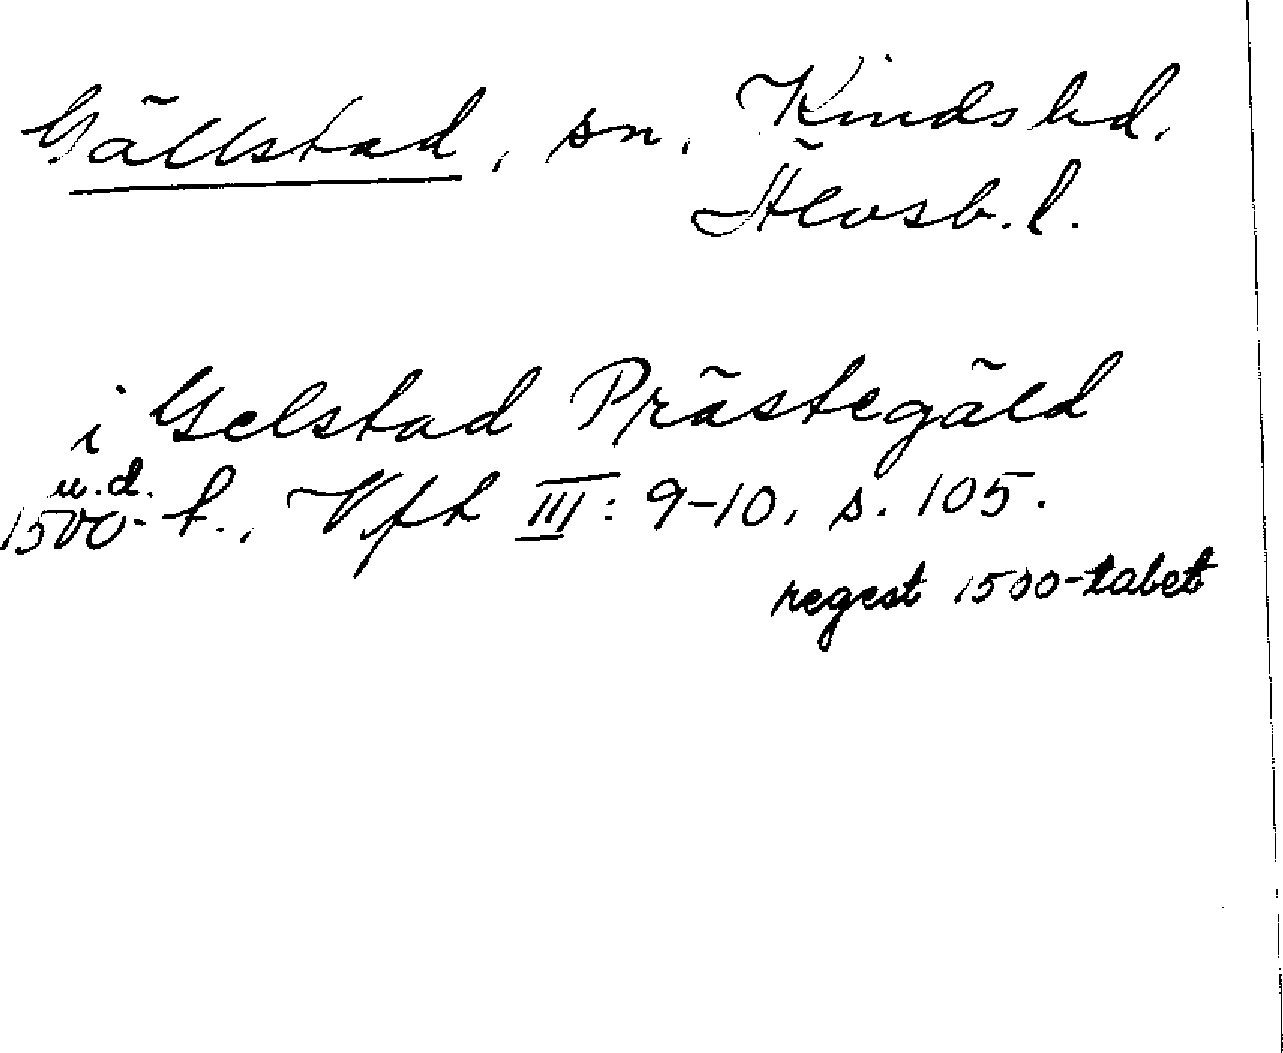 Gällstad, sn, Kinds hd,
Älvsb. l.
i Gelstad Prästegäld
u.d.
1500-t., Vfh III: 9-10, s. 105.
regest 1500-talet